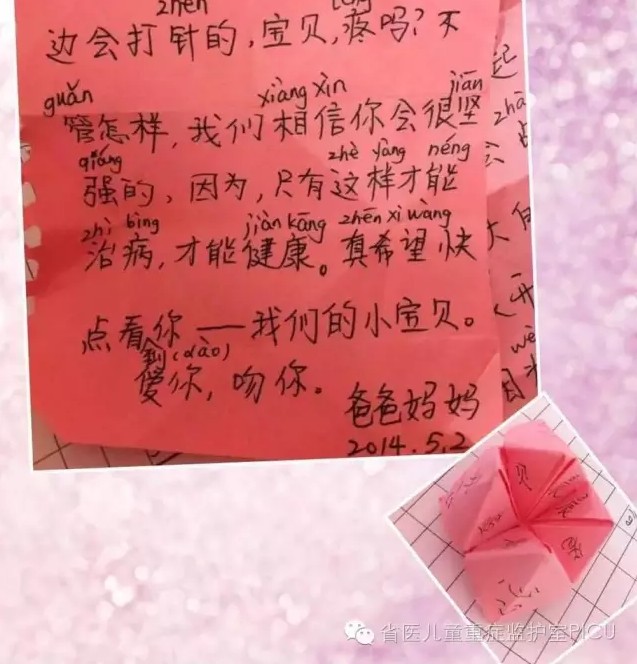 zhēn
边会打针的,宝贝,疼吗?不
guǎn xiàng xìn jiān
管怎样,我们相信你会很坚
qiáng zhè yàng néng
强的,因为,只有这样才能
zhì bìng jiàn kāng zhēn xī wàng
治病,才能健康。真希望快
点看你——我们的小宝贝。
到(dào)
爱你,吻你。
爸爸妈妈
2014.5.2
起
大
省医儿童重症监护室PICU